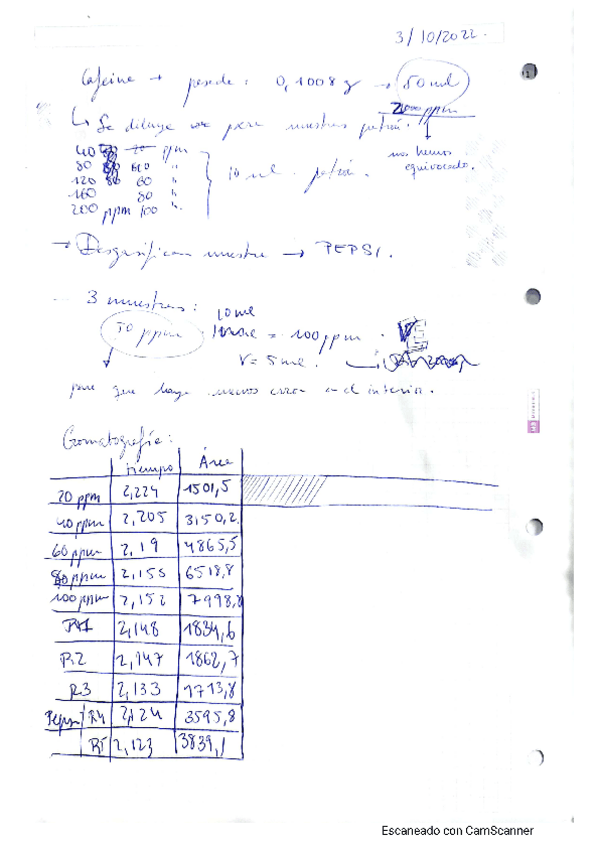 3/10/2022.
Cafeína → pesada: 0,1008 g → 50 ml
2000 ppm
↳ Se diluye para nuestros patrón.
no hemos
equivocado.
40 20 ppm
80 40 "
120 60 "
160 80 "
200 ppm 100 "
10 ml. patrón.
→ Desgasifican muestra → PEPSI.
3 muestras: 10 ml
50 ppm = 100 ppm.
V = 5 ml.
para que haya menos error en el interior.
Cromatografía:
tiempo Área
20 ppm 2,224 1501,5
40 ppm 2,205 3150,2
60 ppm 2,19 4865,5
80 ppm 2,155 6518,8
100 ppm 2,152 7998,8
R1 2,148 1834,6
R2 2,147 1862,7
R3 2,133 1713,8
R4 2,124 3595,8
R5 2,123 3839,1
Escaneado con CamScanner